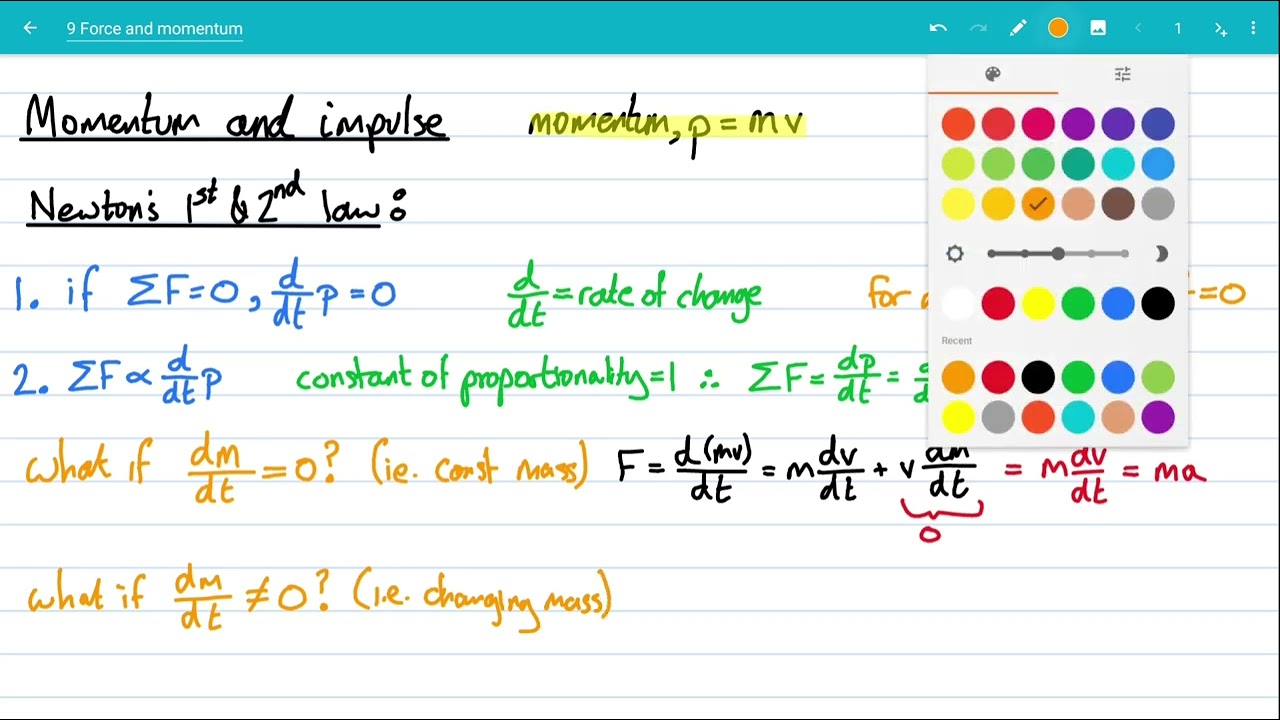 9 Force and momentum
1
Momentum and impulse momentum, p = mv
Newton's 1st & 2nd law:
1. if ΣF=0, d/dt p = 0 d/dt = rate of change for =0
2. ΣF ∝ d/dt p constant of proportionality=1 ∴ ΣF = dp/dt =
Recent
what if dm/dt = 0? (ie. const mass) F = d(mv)/dt = m dv/dt + v dm/dt = m dv/dt = ma
0
what if dm/dt ≠ 0? (i.e. changing mass)